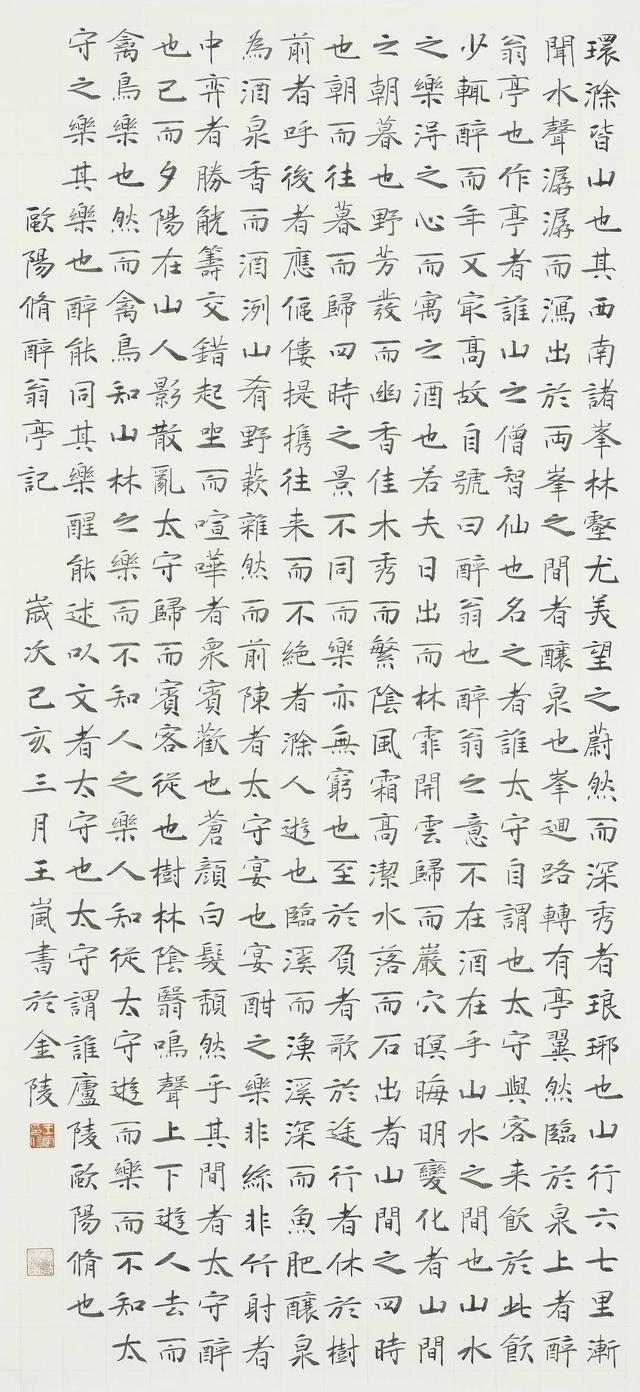 環滁皆山也其西南諸峯林壑尤美望之蔚然而深秀者琅琊也山行六七里漸
聞水聲潺潺而瀉出於兩峯之間者釀泉也峯迴路轉有亭翼然臨於泉上者醉
翁亭也作亭者誰山之僧智仙也名之者誰太守自謂也太守與客来飲於此飲
少輒醉而年又冣高故自號曰醉翁也醉翁之意不在酒在乎山水之間也山水
之樂淂之心而寓之酒也若夫日出而林霏開雲歸而巖穴暝晦明變化者山間
之朝暮也野芳發而幽香佳木秀而繁陰風霜高潔水落而石出者山間之四時
也朝而往暮而歸四時之景不同而樂亦無窮也至於負者歌於途行者休於樹
前者呼後者應傴僂提携往来而不絕者滁人遊也臨溪而漁溪深而魚肥釀泉
為酒泉香而酒洌山肴野蔌雜然而前陳者太守宴也宴酣之樂非絲非竹射者
中弈者勝觥籌交錯起坐而喧嘩者衆賓歡也蒼顏白髮頹然乎其間者太守醉
也已而夕陽在山人影散亂太守歸而賓客從也樹林陰翳鳴聲上下遊人去而
禽鳥樂也然而禽鳥知山林之樂而不知人之樂人知從太守遊而樂而不知太
守之樂其樂也醉能同其樂醒能述以文者太守也太守謂誰廬陵歐陽脩也
歐陽脩醉翁亭記 歲次己亥三月王嵐書於金陵